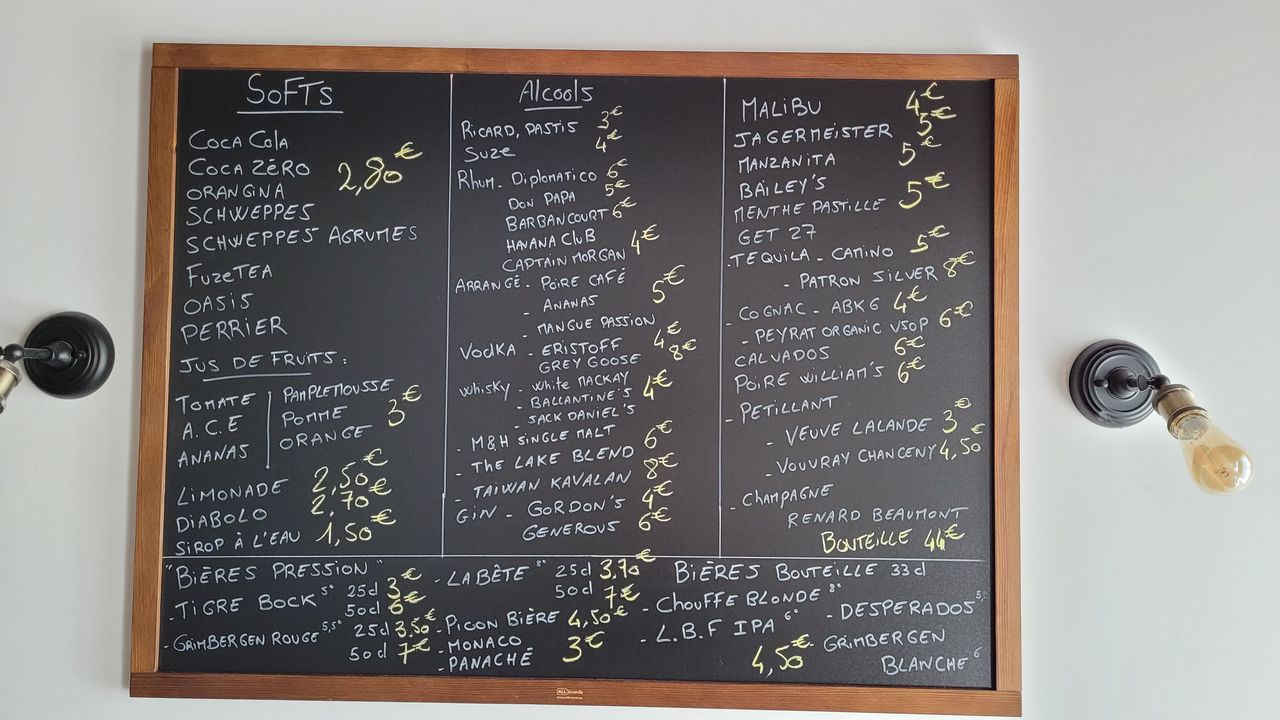 SOFTS
COCA COLA
COCA ZÉRO
2,80€
ORANGINA
SCHWEPPES
SCHWEPPES AGRUMES
FUZETEA
OASIS
PERRIER
JUS DE FRUITS :
TOMATE
A.C.E
ANANAS
PAMPLEMOUSSE
POMME 3€
ORANGE
LIMONADE 2,50€
DIABOLO 2,70€
SIROP À L'EAU 1,50€
Alcools
RICARD, PASTIS 3€
SUZE 4€
Rhum - Diplomatico 6€
DON PAPA 5€
BARBANCOURT 6€
HAVANA CLUB
CAPTAIN MORGAN 4€
ARRANGÉ - POIRE CAFÉ
- ANANAS 5€
- MANGUE PASSION
VODKA - ERISTOFF 4€
GREY GOOSE 8€
WHISKY - WHITE MACKAY
- BALLANTINE'S 4€
- JACK DANIEL'S
- M&H SINGLE MALT 6€
- THE LAKE BLEND
- TAIWAN KAVALAN 8€
GIN - GORDON'S 4€
GENEROUS 6€
MALIBU 4€
JAGERMEISTER 5€
MANZANITA 5€
BAILEY'S
MENTHE PASTILLE 5€
GET 27
- TEQUILA - CAMINO 5€
- PATRON SILVER 8€
- COGNAC - ABK6 4€
- PEYRAT ORGANIC VSOP 6€
CALVADOS 6€
POIRE WILLIAM'S 6€
- PETILLANT
- VEUVE LALANDE 3€
- VOUVRAY CHANCENY 4,50€
- CHAMPAGNE
RENARD BEAUMONT
BOUTEILLE 44€
"BIÈRES PRESSION"
- TIGRE BOCK 5° 25cl 3€
50cl 6€
- GRIMBERGEN ROUGE 5,5° 25cl 3,50€
50cl 7€
- LA BÊTE 8° 25cl 3,70€
50cl 7€
- PICON BIÈRE 4,50€
- MONACO
- PANACHÉ 3€
BIÈRES BOUTEILLE 33cl
- CHOUFFE BLONDE 8°
- L.B.F IPA 6°
- DESPERADOS
GRIMBERGEN
BLANCHE 6
4,50€
ALLboards